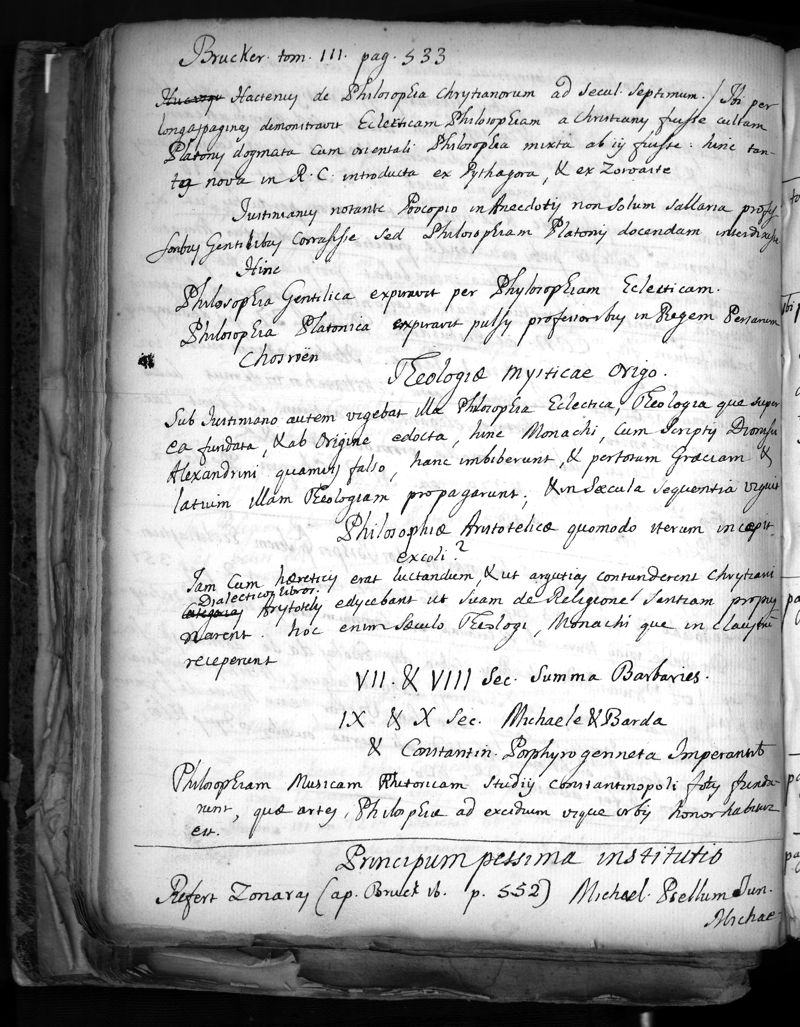 Brucker. tom. III. pag. 533
Hactenus de Philosophia Chrystianorum ad secul. septimum. / Ibi per
longas paginas demonstravit Eclecticam Philosophiam a Christianis fuisse cultam
Platonis dogmata cum orientali Philosophia mixta ab ijs fuisse : hinc tan-
tę nova in R. C. introducta ex Pythagora, & ex Zoroastre
Justinianus notante Procopio in Anecdotis non solum sallaria profes
soribus Gentilibus corrasisse sed Philosophiam Platonis docendam interdixisse
Hinc
Philosophia Gentilica expiravit per Phylosophiam Eclecticam.
Philosophia Platonica expiravit pulsis professoribus in Regem Persarum
Chosroën
Theologiæ Mysticae origo.
Sub Justiniano autem vigebat illa Philosophia Eclectica, Theologia que super
ea fundata, & ab Origine edocta, hinc Monachi, cum scriptis Dionysii
Alexandrini quamvis falso, hanc imbiberunt, & per totam Græciam &
latium illam Theologiam propagarunt; & in Sæcula sequentia viguit
Philosophiæ Aristotelicæ quomodo iterum incæpit
excoli?
Jam cum hæreticis erat luctandum, & ut argutias contunderent Chrystiani
Dialecticor libror.
Categorias Arystotelis edycebant ut suam de Religione sentiam propug
narent. hoc enim Sæculo Theologi, Monachi que in claustris
receperunt
VII. & VIII Sec. Summa Barbaries.
IX & X Sec. Michaele & Barda
& Constantin. Porphyrogenneta Imperantib
Philosophiam Musicam Rhetoricam studijs Constantinopoli fotis funda-
runt, quæ artes, Philosophiæ ad excidium usque urbis honor habitus
est.
Principum pessima institutio
Refert Zonaras (ap. Bruck ib. p. 552) Michael. Psellum Jun.
Michae-